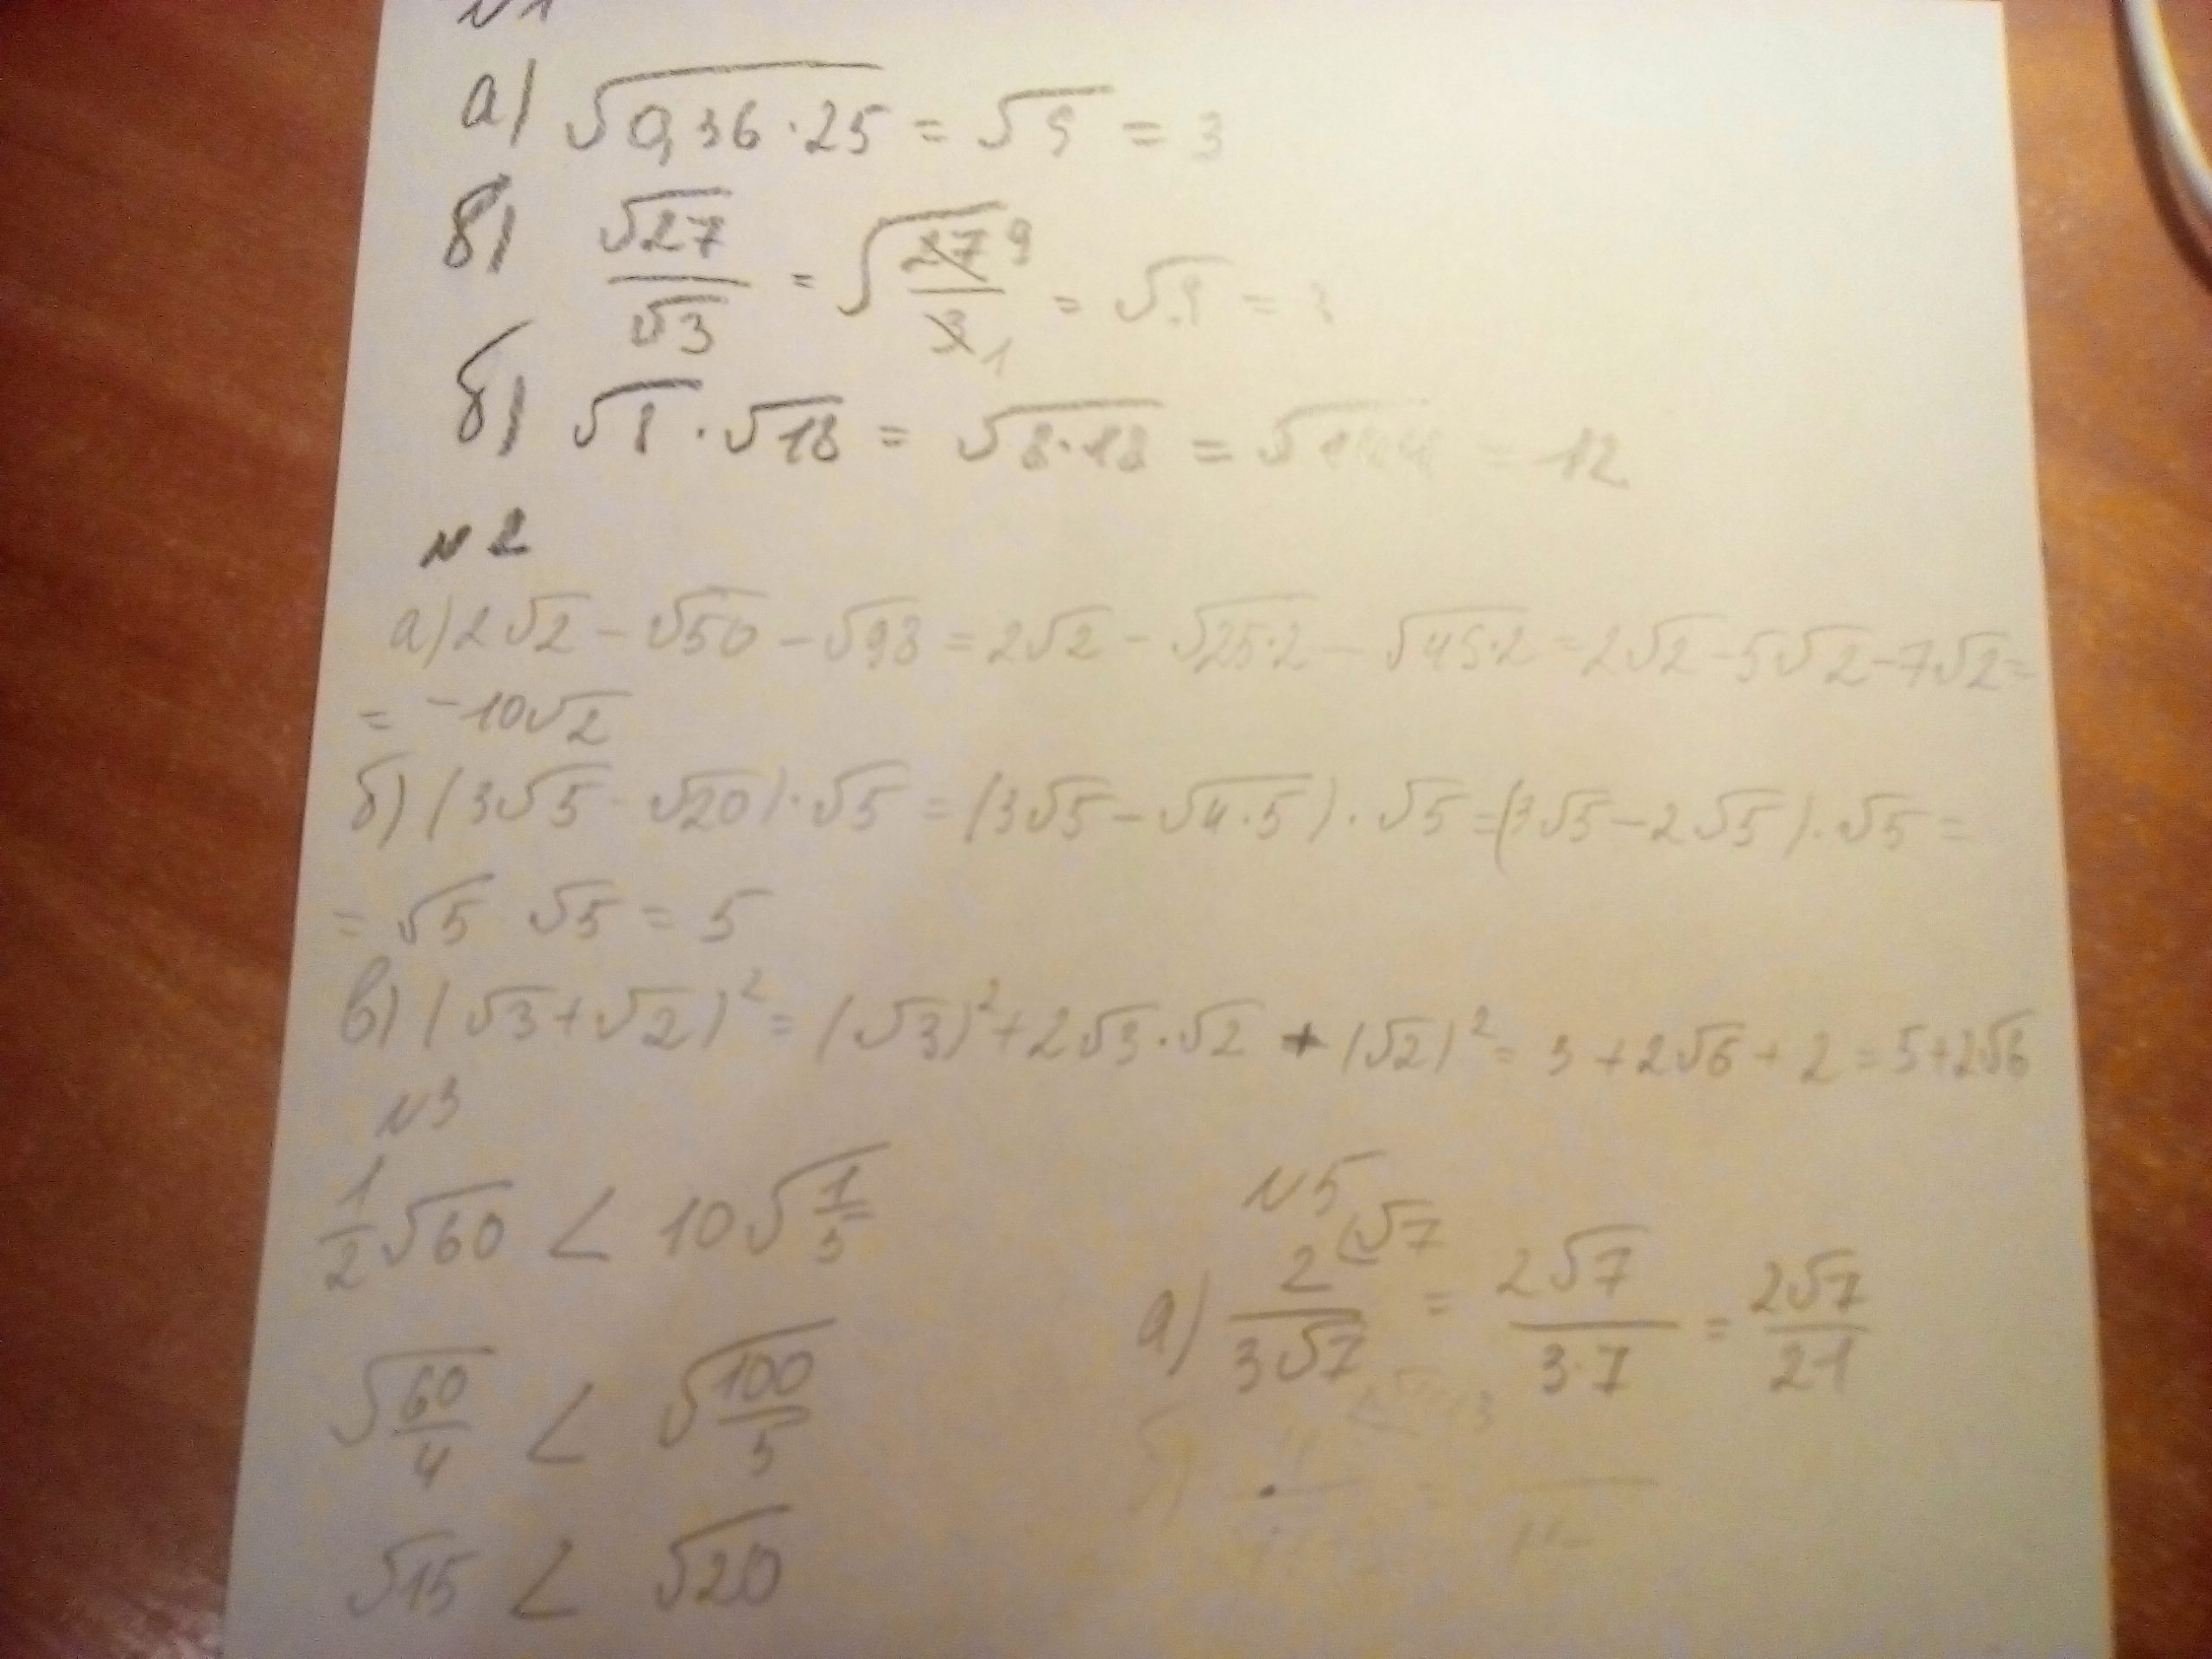 №1
а) √0,36·25 = √9 = 3
б) √27/√3 = √27/3 9 1 = √9 = 3
б) √8 · √18 = √8·18 = √144 = 12
№2
а) 2√2 - √50 - √98 = 2√2 - √25·2 - √49·2 = 2√2 - 5√2 - 7√2 =
= -10√2
б) (3√5 - √20) · √5 = (3√5 - √4·5) · √5 = (3√5 - 2√5) · √5 =
= √5 √5 = 5
в) (√3 + √2)² = (√3)² + 2√3 · √2 + (√2)² = 3 + 2√6 + 2 = 5 + 2√6
№3
1/2 √60 < 10√1/5
√60/4 < √100/5
√15 < √20
№5
а) 2 (√7 / 3√7 = 2√7 / 3·7 = 2√7 / 21